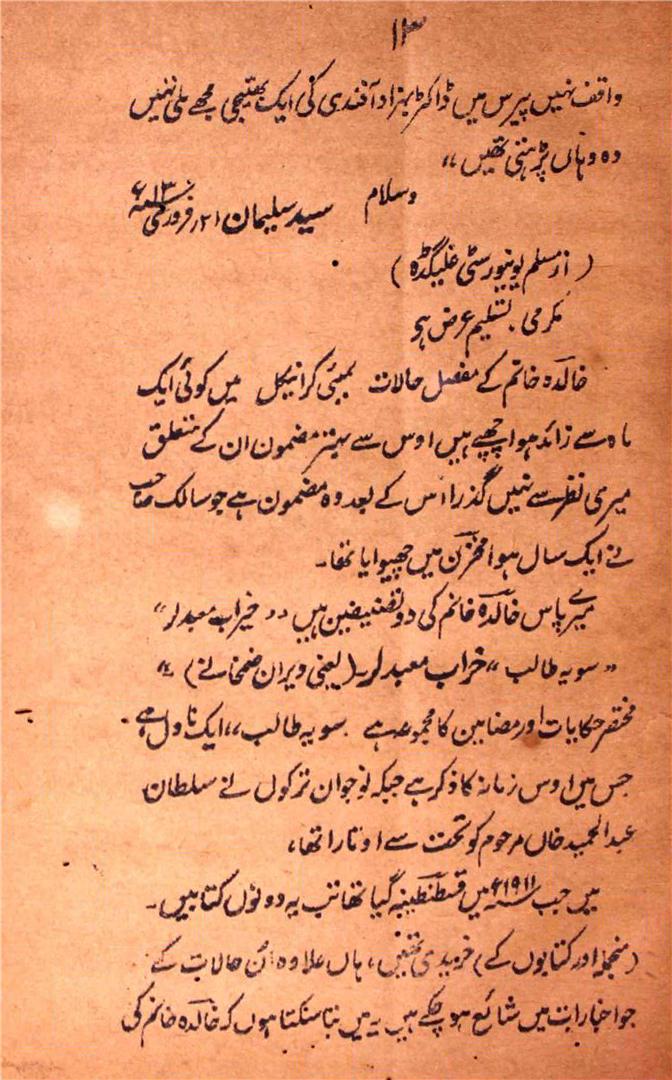 ۱۳
واقف نہیں پیرس میں ڈاکٹر بہزاد آفندی کی ایک بھتیجی مجھے ملی تھیں
وہ وہاں پڑہتی تھیں ،،
وسلام
سید سلیمان ۲۱ر فروری
( از مسلم یونیورسٹی علیگڈہ )
مکرمی . تسلیم عرض ہی
خالدہ خانم کے مفصل حالات بمبئی کرانیکل میں کوئی ایک
ماہ سے زائد ہوا چھپے ہیں اوس سے بہتر مضمون ان کے متعلق
میری نظر سے نہیں گذرا اس کے بعد وہ مضمون ہے جو سالک صاحب
نے ایک سال ہوا مخزن میں چھپوایا تھا ۔
میرے پاس خالدہ خانم کی دو تصنیفین ہیں ،، خراب معبدلر ،،
،، سویہ طالب ،، خراب معبدلر ۔ (یعنی ویران صنمخانے) ،،
مختصر حکایات اور مضامین کا مجموعہ ہے . سویہ طالب ،، ایک ناول ہے
جس میں اوس زمانہ کا ذکر ہے جبکہ نوجوان ترکوں نے سلطان
عبدالحمید خاں مرحوم کو تخت سے اوتارا تھا ،
میں جب سنہ ۱۹۱۱ء میں قسطنطینہ گیا تھا تب یہ دونوں کتابیں ۔
(منجملہ اور کتابوں کے) خریدی تھیں ، ہاں علاوہ ان حالات کے
جو اخبارات میں شائع ہو چکے ہیں یہ میں بتا سکتا ہوں کہ خالدہ خانم کی